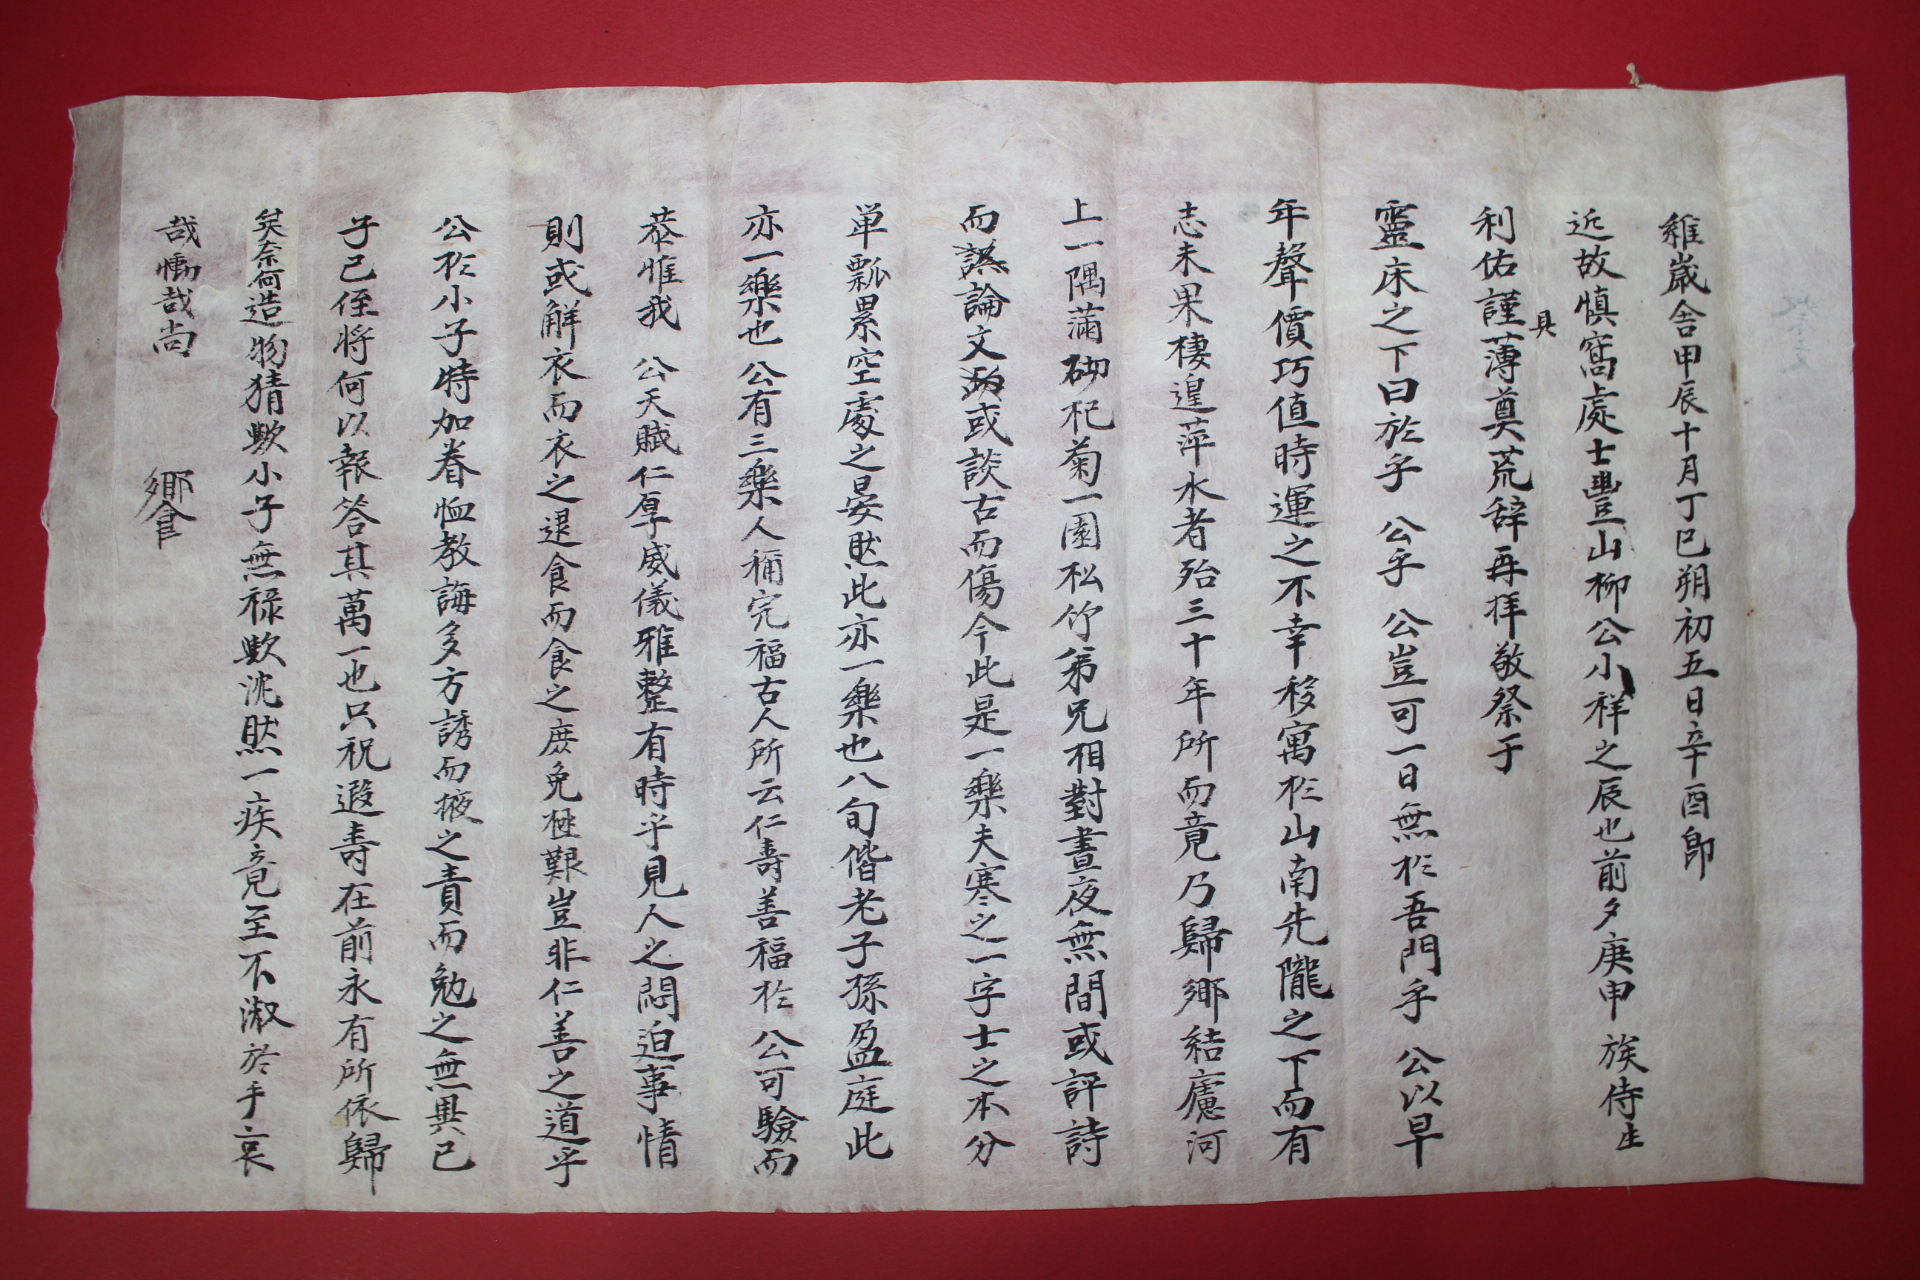 維歲舍甲辰十月丁巳朔初五日辛酉卽
近故愼窩處士豐山柳公小祥之辰也前夕庚申 族侍生
利佑謹具薄奠荒辞再拜敬祭于
靈床之下曰於乎 公乎 公豈可一日無於吾門乎 公以早
年聲價巧値時運之不幸移寓於山南先隴之下而有
志未果棲遑萍水者殆三十年所而竟乃歸鄉結廬河
上一隅滿砌杞菊一園松竹弟兄相對晝夜無間或評詩
而論文或談古而傷今此是一樂夫寒之一字士之本分
単瓢累空處之晏然此亦一樂也八旬偕老子孫盈庭此
亦一樂也公有三樂人稱完福古人所云仁壽善福於 公可驗而
恭惟我 公天賦仁厚威儀雅整有時乎見人之悶迫事情
則或解衣而衣之退食而食之庶免極艱豈非仁善之道乎
公於小子特加眷恤敎誨多方誘而掖之責而勉之無異己
子己侄將何以報答其萬一也只祝遐壽在前永有所依歸
矣奈何造物猜歟小子無祿歟沈然一疾竟至不淑於乎哀
哉慟哉尚 饗